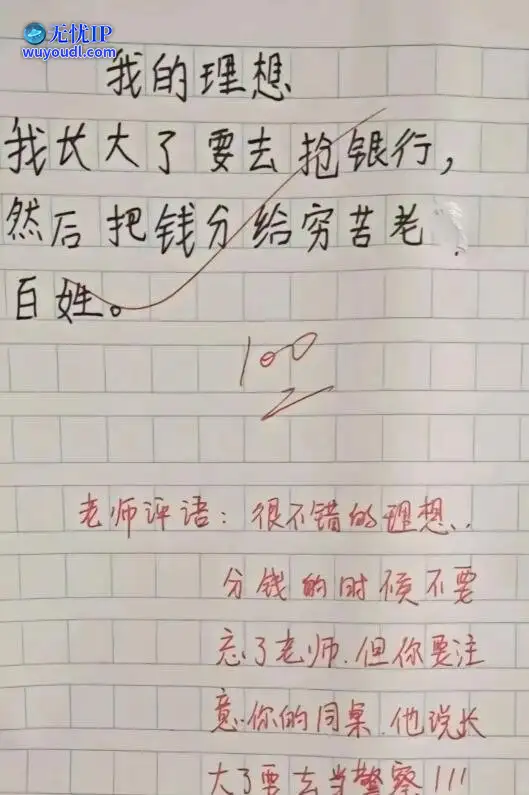 无忧IP
wuyoudl.com
我的理想
我长大了要去抢银行，
然后把钱分给穷苦老
百姓。
100
老师评语：很不错的理想..
分钱的时候不要
忘了老师.但你要注
意.你的同桌.他说长
大了要去当警察!!!